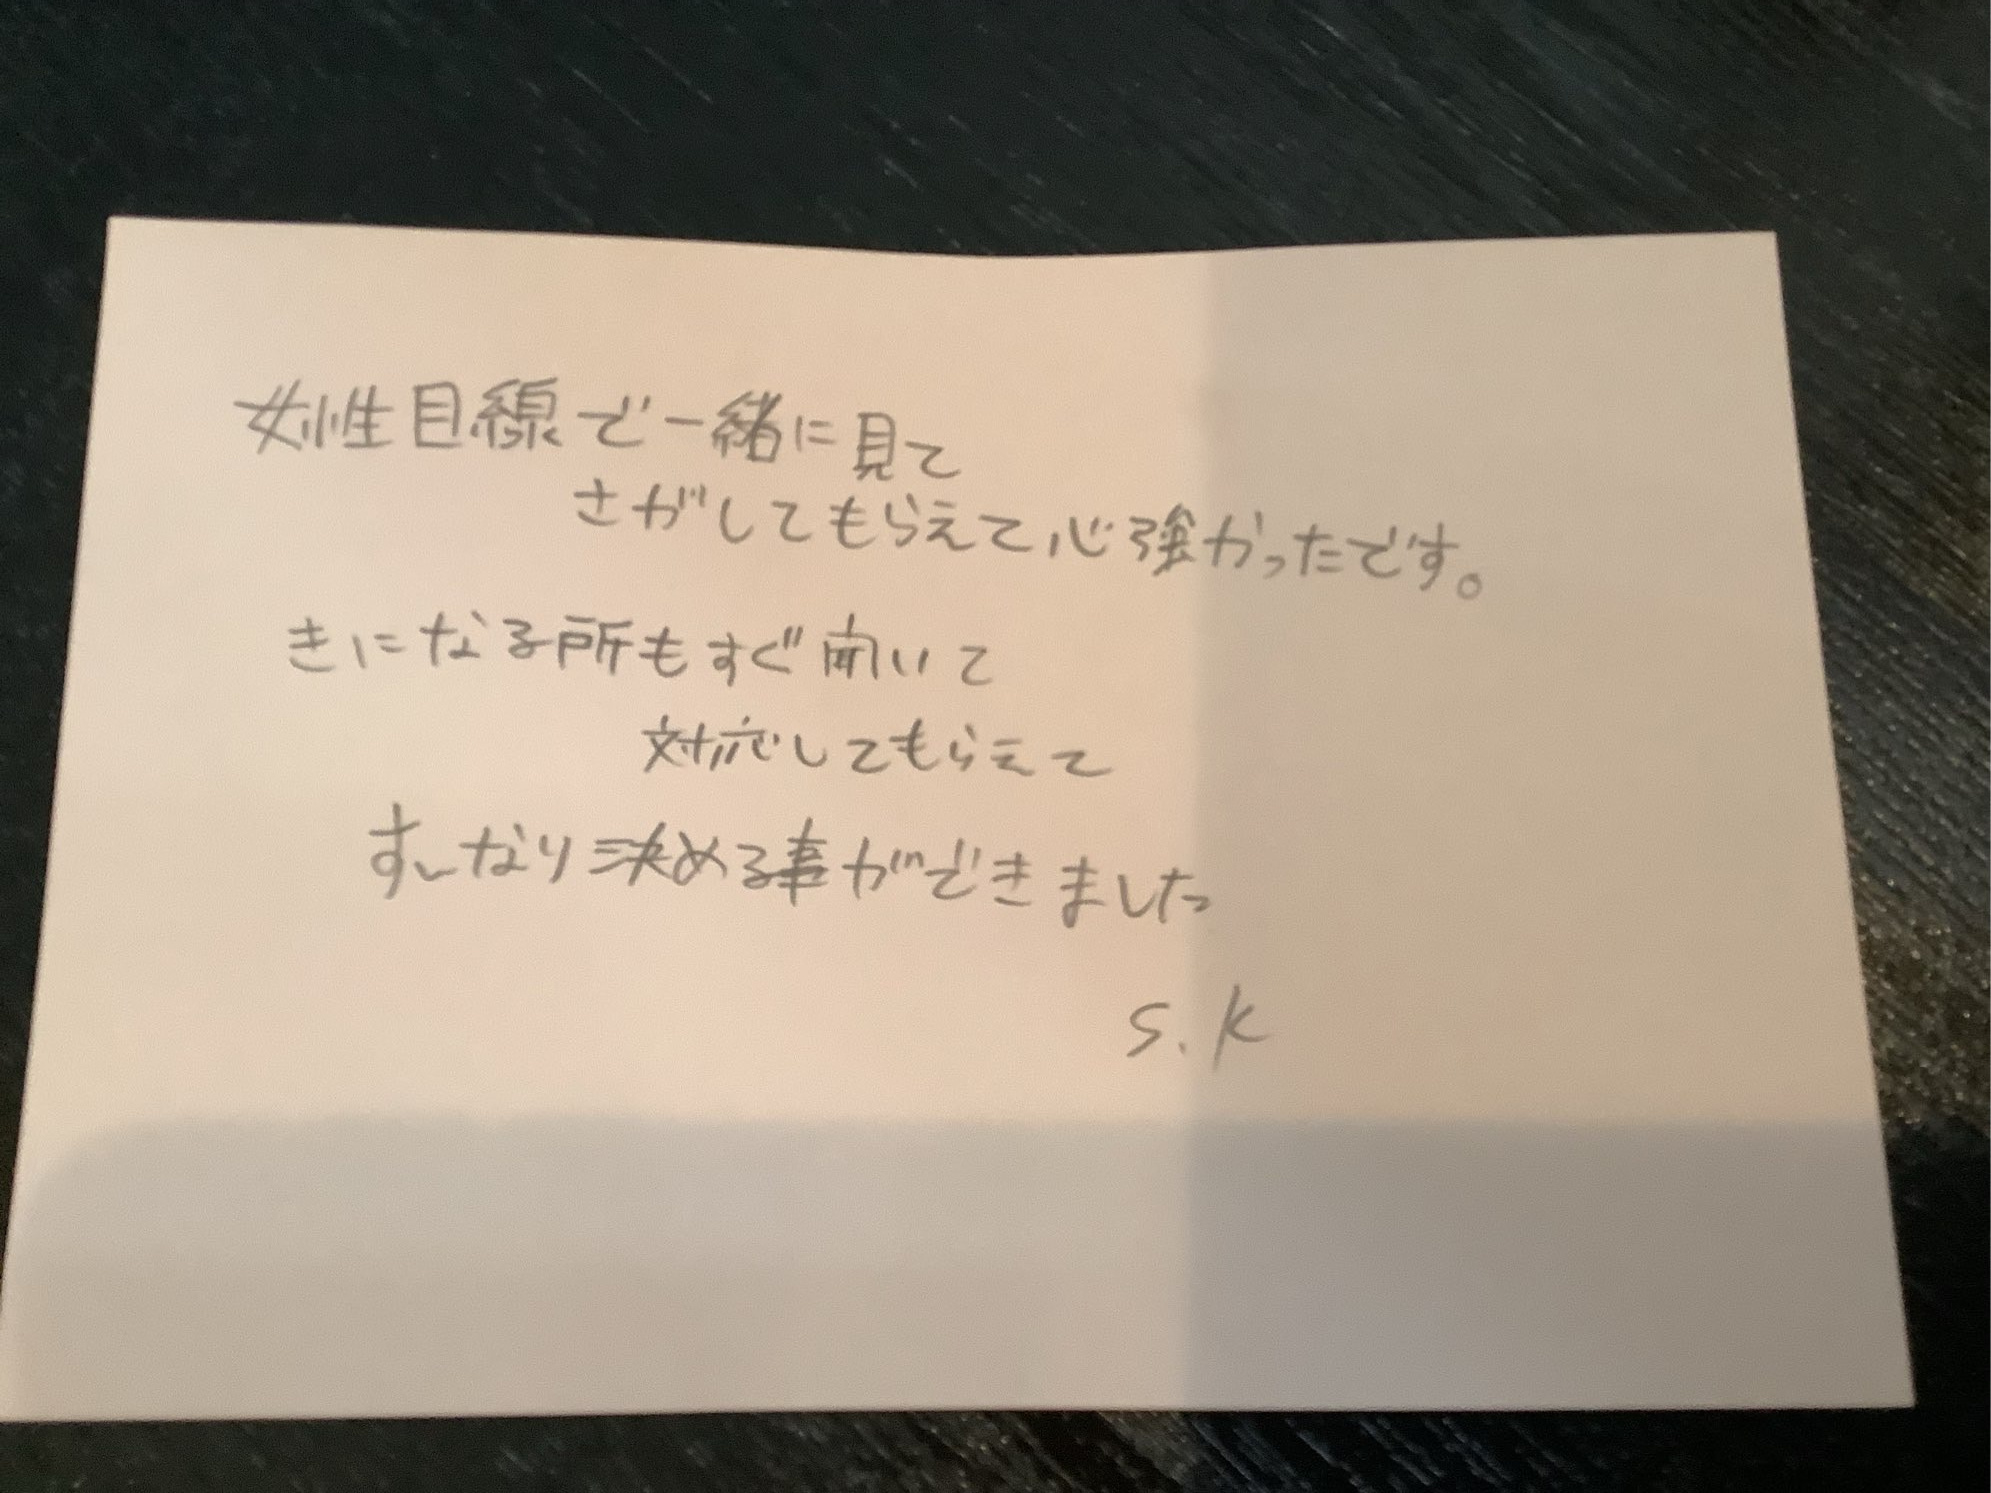 女性目線で一緒に見て
さがしてもらえて心強かったです。
きになる所もすぐ聞いて
対応してもらえて
すんなり決める事ができました
S.K